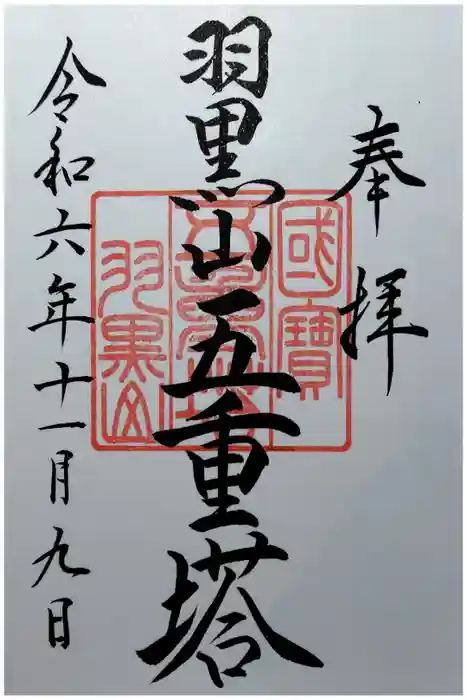 奉拝
國寶
五重塔
羽黒山
羽黒山五重塔
令和六年十一月九日